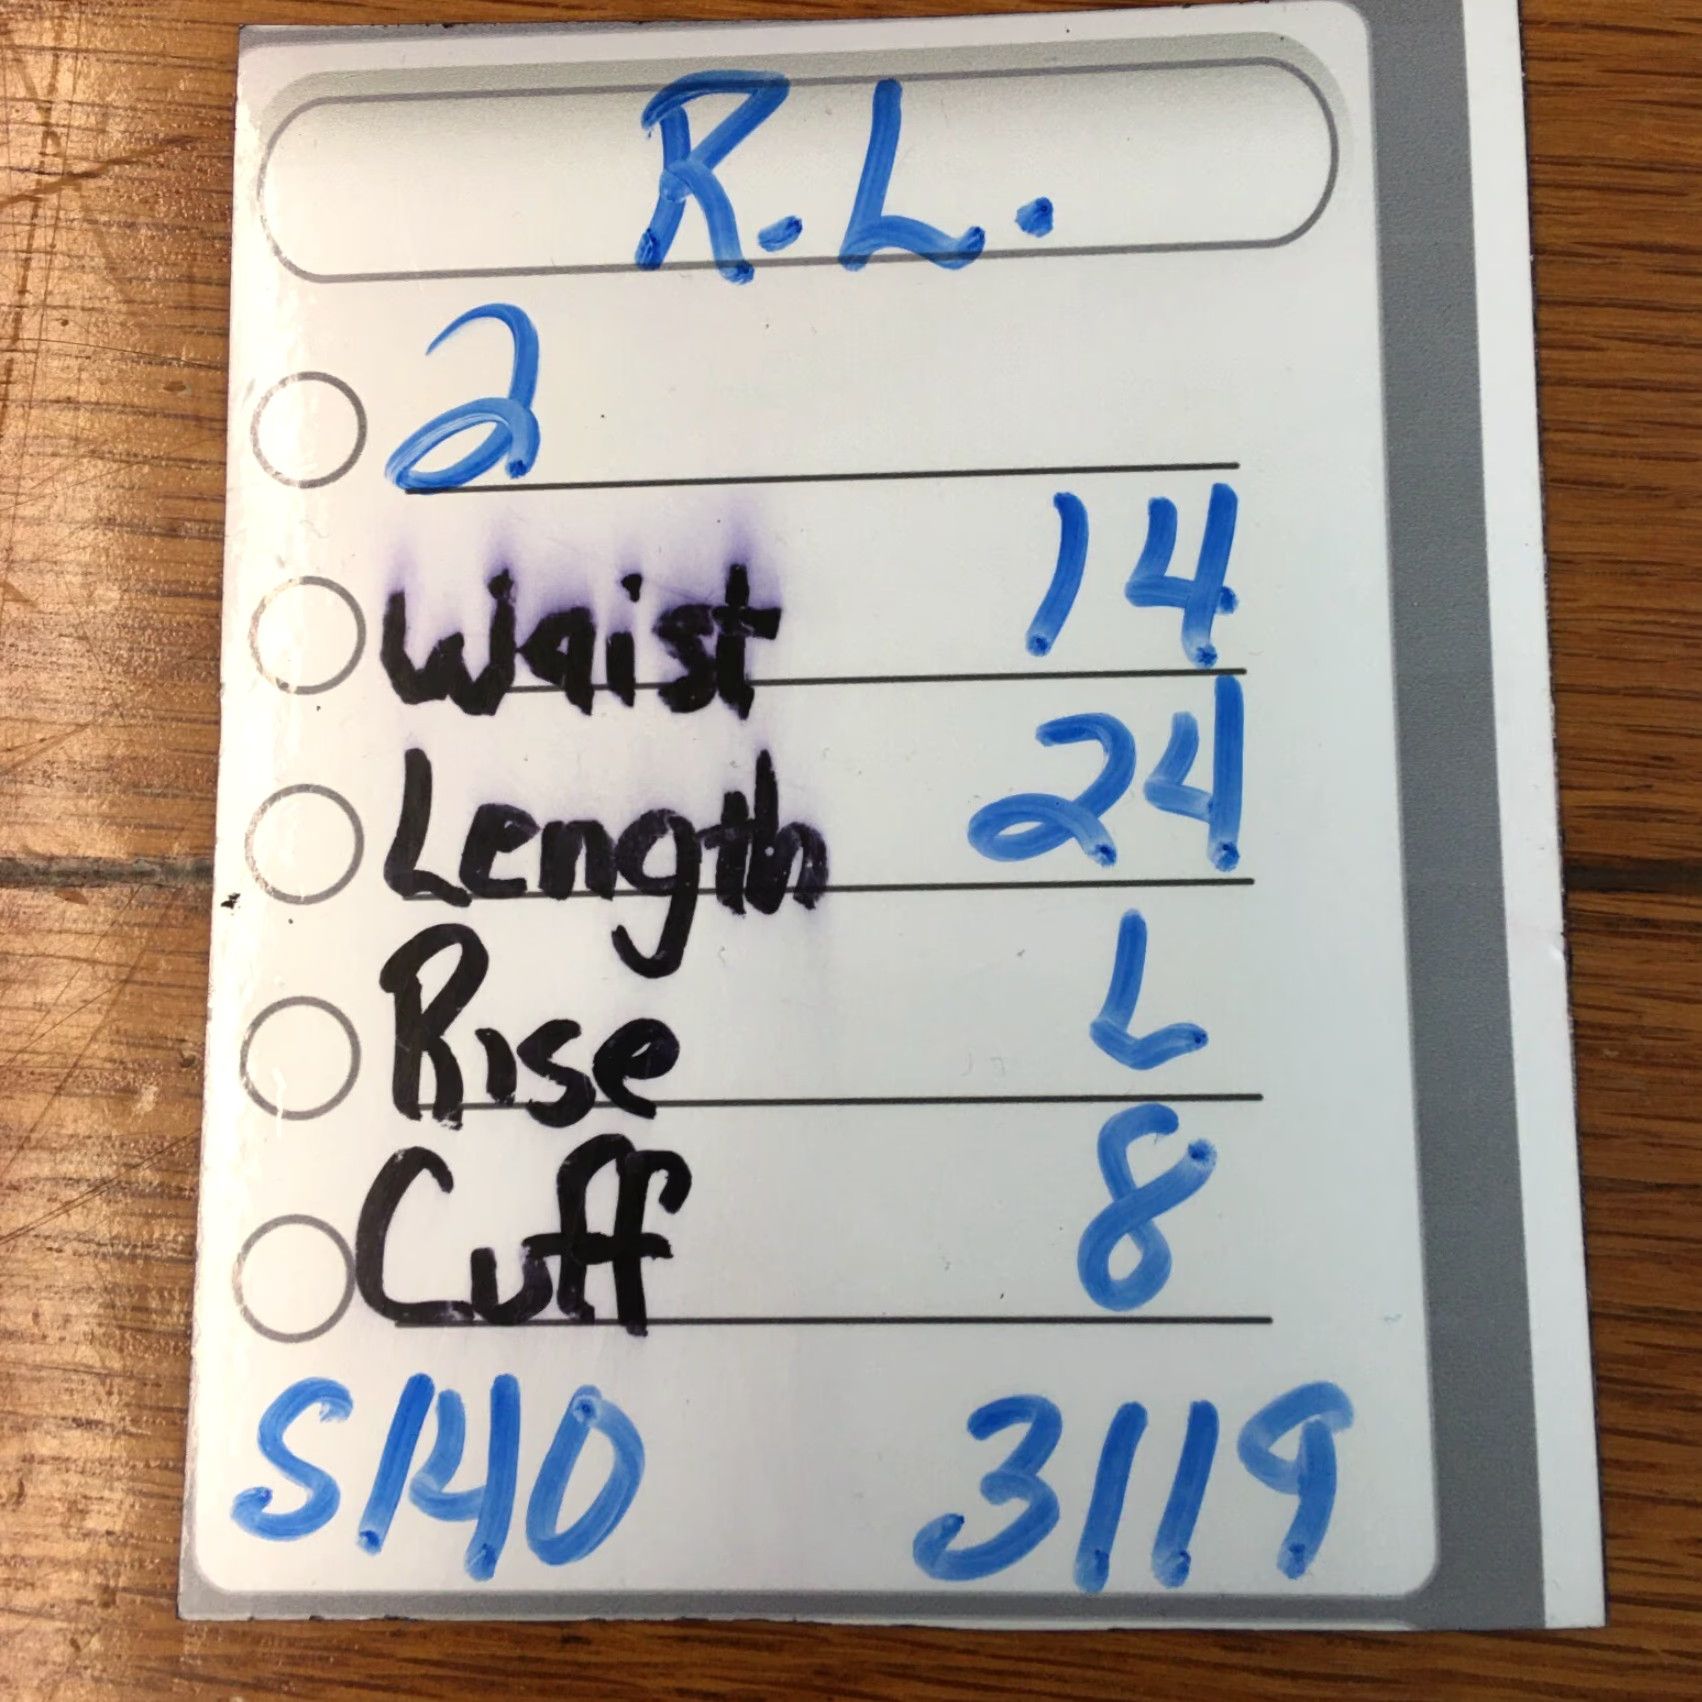 R.L.
2
Waist 14
Length 24
Rise L
Cuff 8
S140 3119